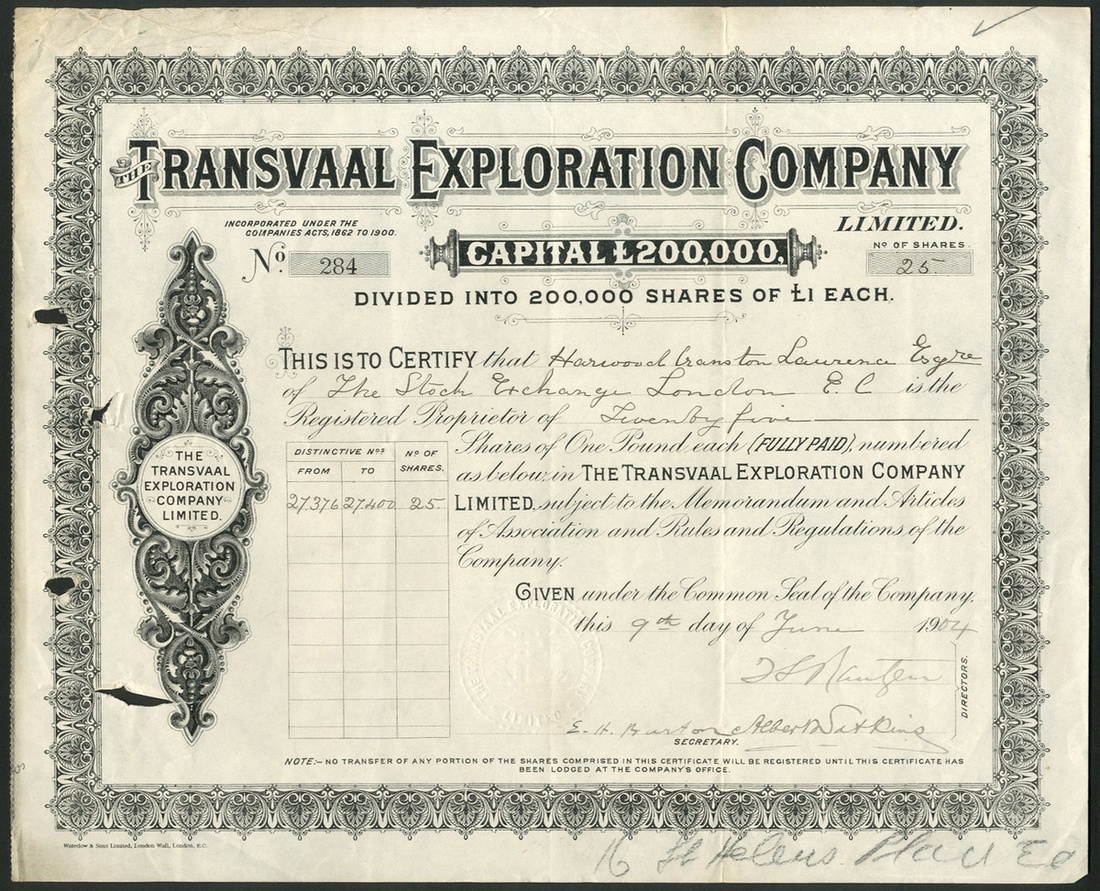 THE TRANSVAAL EXPLORATION COMPANY
LIMITED.
INCORPORATED UNDER THE
COMPANIES ACTS, 1862 TO 1900.
CAPITAL £200,000,
No. 284
No OF SHARES.
25
DIVIDED INTO 200,000 SHARES OF £1 EACH.
THIS IS TO CERTIFY that Harwood Cranston Laurence Esqre
of The Stock Exchange London E.C is the
Registered Proprietor of Twenty five
Shares of One Pound each (FULLY PAID), numbered
as below in THE TRANSVAAL EXPLORATION COMPANY
LIMITED, subject to the Memorandum and Articles
of Association and Rules and Regulations of the
Company.
DISTINCTIVE Nos
No OF SHARES.
FROM TO
27376 27400 25.
THE
TRANSVAAL
EXPLORATION
COMPANY
LIMITED.
GIVEN under the Common Seal of the Company.
this 9th day of June 1904
THE TRANSVAAL EXPLORATION COMPANY LIMITED
DIRECTORS.
E. H. Burton Albert Watkins
SECRETARY.
NOTE:- NO TRANSFER OF ANY PORTION OF THE SHARES COMPRISED IN THIS CERTIFICATE WILL BE REGISTERED UNTIL THIS CERTIFICATE HAS
BEEN LODGED AT THE COMPANY'S OFFICE.
Waterlow & Sons Limited, London Wall, London, E.C.
16 St Helens Place EC